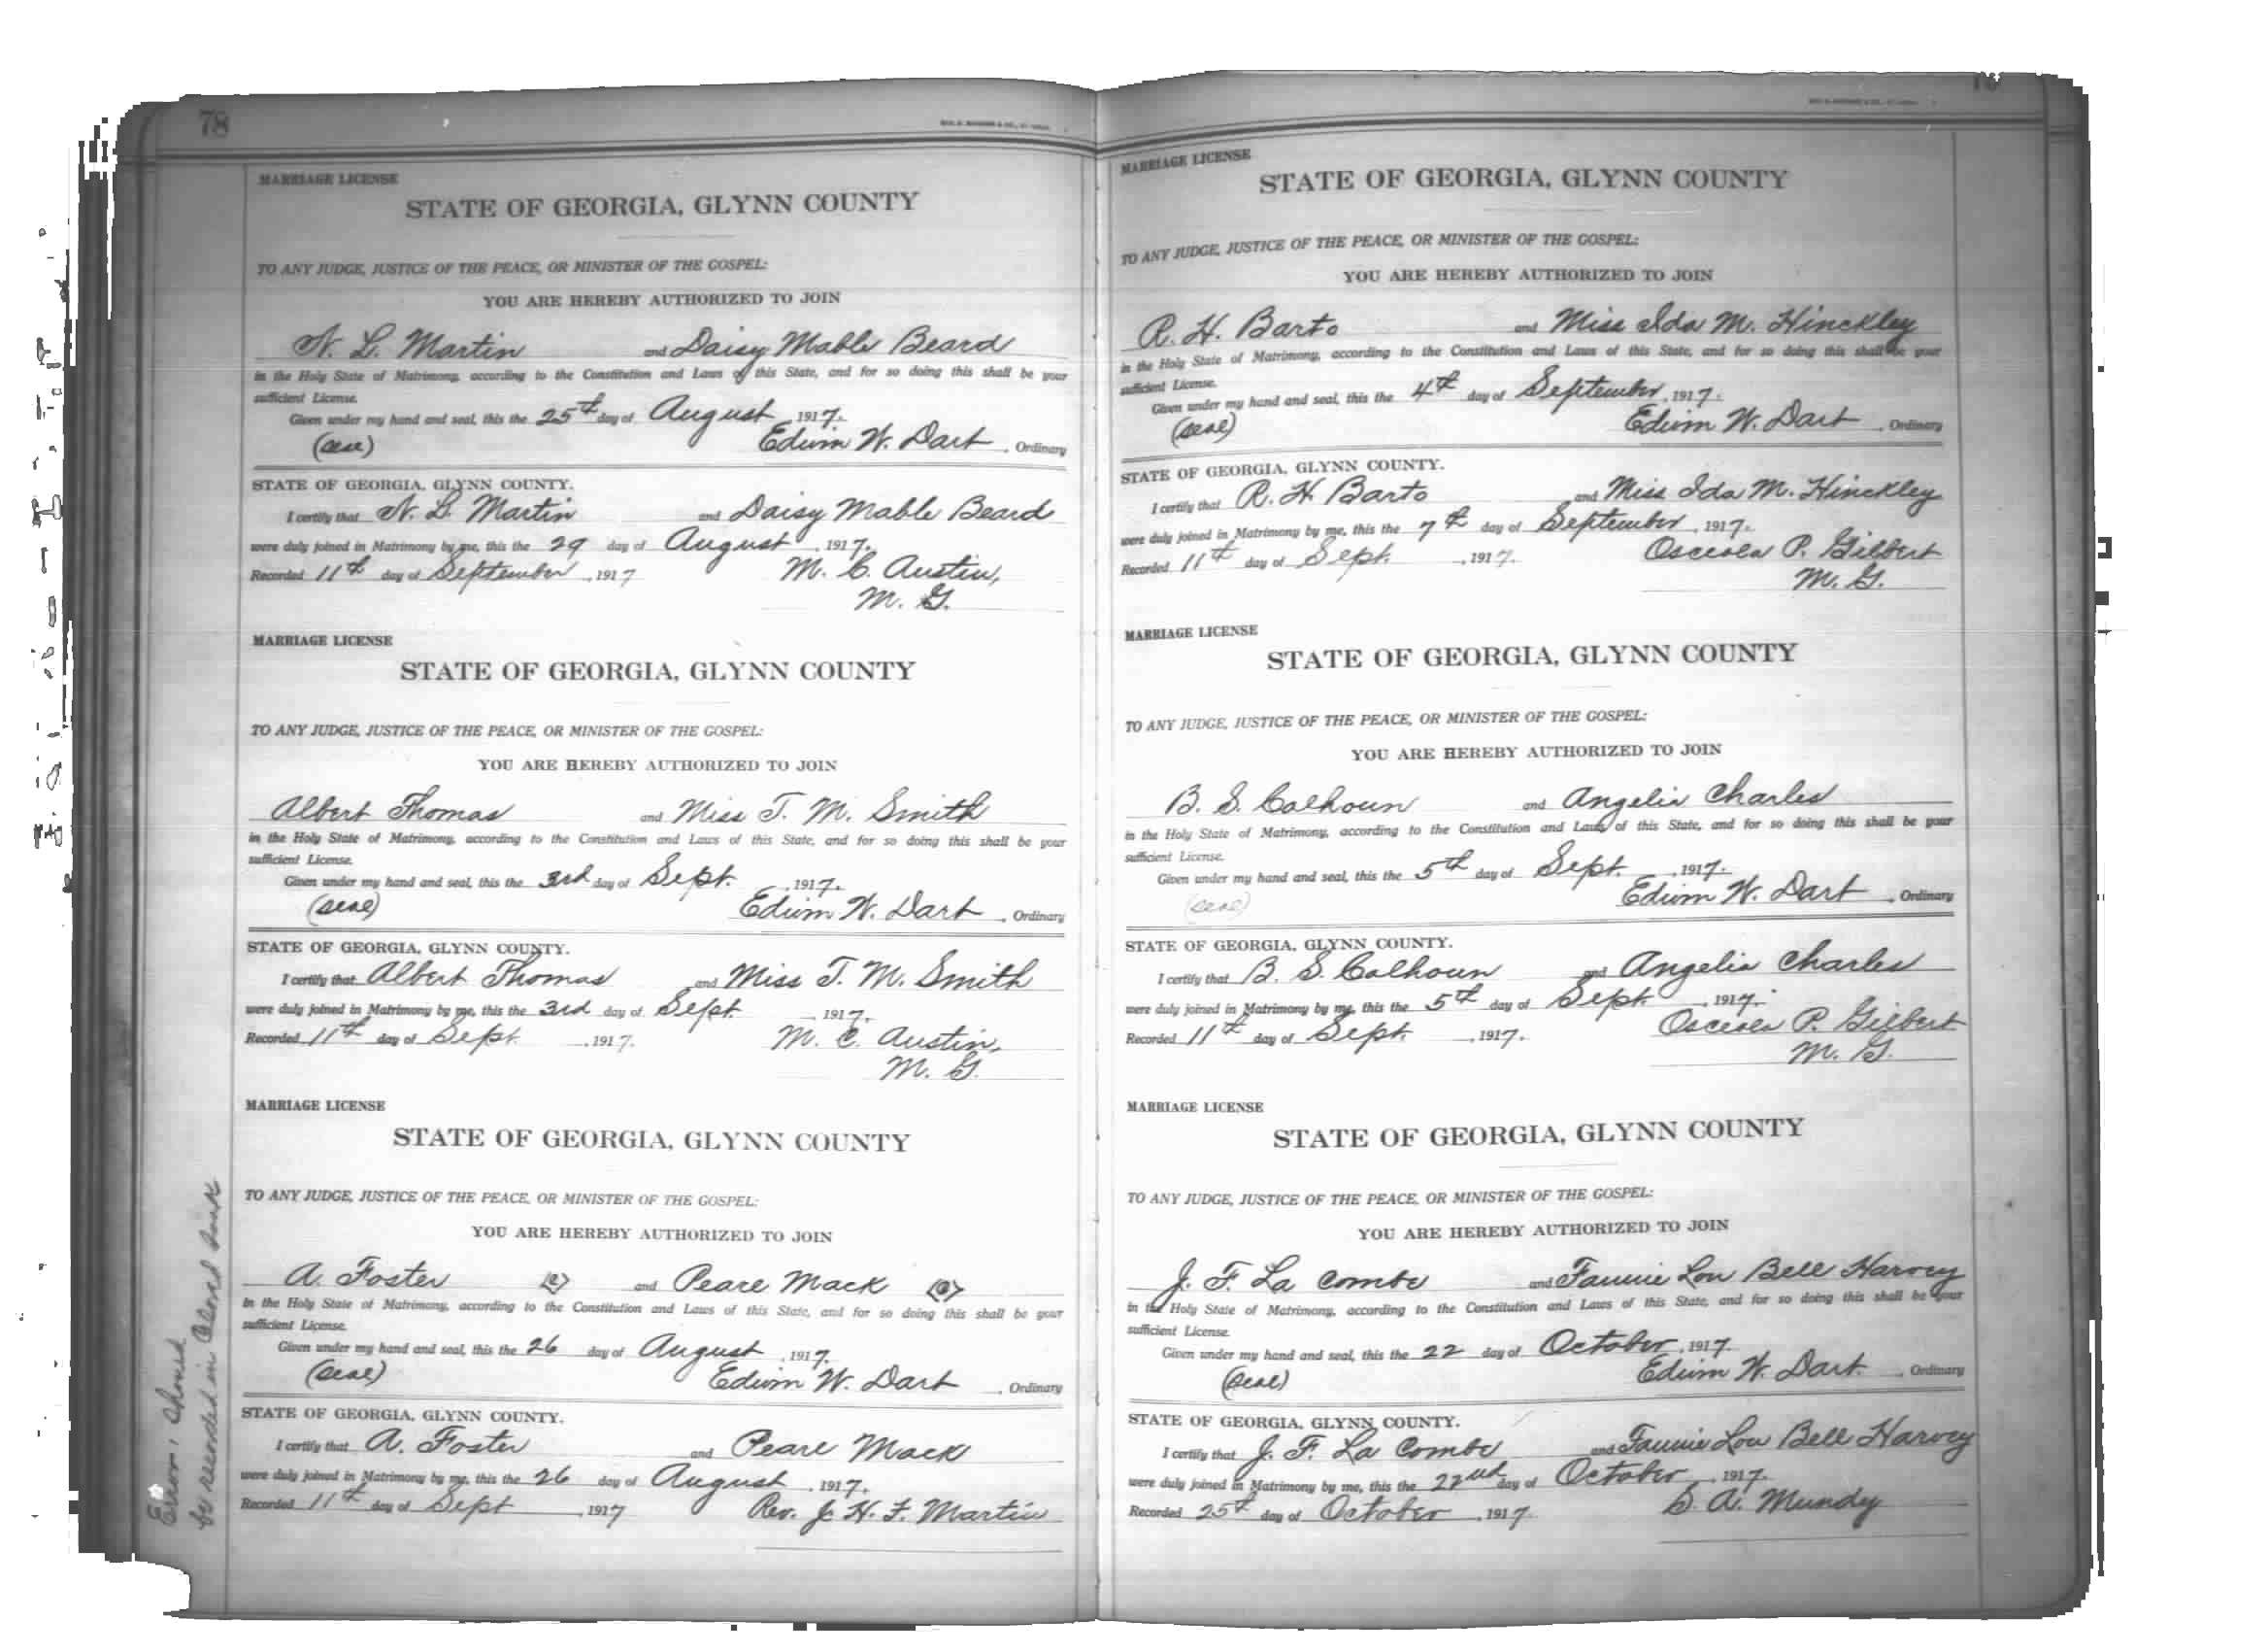 78
MARRIAGE LICENSE
STATE OF GEORGIA, GLYNN COUNTY
TO ANY JUDGE, JUSTICE OF THE PEACE, OR MINISTER OF THE GOSPEL:
YOU ARE HEREBY AUTHORIZED TO JOIN
N. L. Martin and Daisy Mable Beard
in the Holy State of Matrimony, according to the Constitution and Laws of this State, and for so doing this shall be your
sufficient License.
Given under my hand and seal, this the 25th day of August, 1917.
(seal) Edwin W. Dart, Ordinary
STATE OF GEORGIA, GLYNN COUNTY.
I certify that N. L. Martin and Daisy Mable Beard
were duly joined in Matrimony by me, this the 29 day of August, 1917.
Recorded 11th day of September, 1917 M. C. Austin,
M. G.
MARRIAGE LICENSE
STATE OF GEORGIA, GLYNN COUNTY
TO ANY JUDGE, JUSTICE OF THE PEACE, OR MINISTER OF THE GOSPEL:
YOU ARE HEREBY AUTHORIZED TO JOIN
Albert Thomas and Miss T. M. Smith
in the Holy State of Matrimony, according to the Constitution and Laws of this State, and for so doing this shall be your
sufficient License.
Given under my hand and seal, this the 3rd day of Sept., 1917.
(seal) Edwin W. Dart, Ordinary
STATE OF GEORGIA, GLYNN COUNTY.
I certify that Albert Thomas and Miss T. M. Smith
were duly joined in Matrimony by me, this the 3rd day of Sept., 1917.
Recorded 11th day of Sept., 1917. M. C. Austin,
M. G.
MARRIAGE LICENSE
STATE OF GEORGIA, GLYNN COUNTY
TO ANY JUDGE, JUSTICE OF THE PEACE, OR MINISTER OF THE GOSPEL:
YOU ARE HEREBY AUTHORIZED TO JOIN
A. Foster (c) and Pearl Mack (c)
in the Holy State of Matrimony, according to the Constitution and Laws of this State, and for so doing this shall be your
sufficient License.
Given under my hand and seal, this the 26 day of August, 1917.
(seal) Edwin W. Dart, Ordinary
STATE OF GEORGIA, GLYNN COUNTY.
I certify that A. Foster and Pearl Mack
were duly joined in Matrimony by me, this the 26 day of August, 1917.
Recorded 11th day of Sept, 1917 Rev. J. H. F. Martin
Error; should
be recorded in Colored book
MARRIAGE LICENSE
STATE OF GEORGIA, GLYNN COUNTY
TO ANY JUDGE, JUSTICE OF THE PEACE, OR MINISTER OF THE GOSPEL:
YOU ARE HEREBY AUTHORIZED TO JOIN
R. H. Barto and Miss Ida M. Hinckley
in the Holy State of Matrimony, according to the Constitution and Laws of this State, and for so doing this shall be your
sufficient License.
Given under my hand and seal, this the 4th day of September, 1917.
(seal) Edwin W. Dart, Ordinary
STATE OF GEORGIA, GLYNN COUNTY.
I certify that R. H. Barto and Miss Ida M. Hinckley
were duly joined in Matrimony by me, this the 7th day of September, 1917.
Recorded 11th day of Sept., 1917. Osceola P. Gilbert
M. G.
MARRIAGE LICENSE
STATE OF GEORGIA, GLYNN COUNTY
TO ANY JUDGE, JUSTICE OF THE PEACE, OR MINISTER OF THE GOSPEL:
YOU ARE HEREBY AUTHORIZED TO JOIN
B. S. Calhoun and Angelia Charles
in the Holy State of Matrimony, according to the Constitution and Laws of this State, and for so doing this shall be your
sufficient License.
Given under my hand and seal, this the 5th day of Sept., 1917.
(seal) Edwin W. Dart, Ordinary
STATE OF GEORGIA, GLYNN COUNTY.
I certify that B. S. Calhoun and Angelia Charles
were duly joined in Matrimony by me, this the 5th day of Sept., 1917.
Recorded 11th day of Sept., 1917. Osceola P. Gilbert
M. G.
MARRIAGE LICENSE
STATE OF GEORGIA, GLYNN COUNTY
TO ANY JUDGE, JUSTICE OF THE PEACE, OR MINISTER OF THE GOSPEL:
YOU ARE HEREBY AUTHORIZED TO JOIN
J. F. La Combe and Fannie Lou Bell Harvey
in the Holy State of Matrimony, according to the Constitution and Laws of this State, and for so doing this shall be your
sufficient License.
Given under my hand and seal, this the 22 day of October, 1917.
(seal) Edwin W. Dart., Ordinary
STATE OF GEORGIA, GLYNN COUNTY.
I certify that J. F. La Combe and Fannie Lou Bell Harvey
were duly joined in Matrimony by me, this the 22nd day of October, 1917.
Recorded 25th day of October, 1917. S. A. Mundy